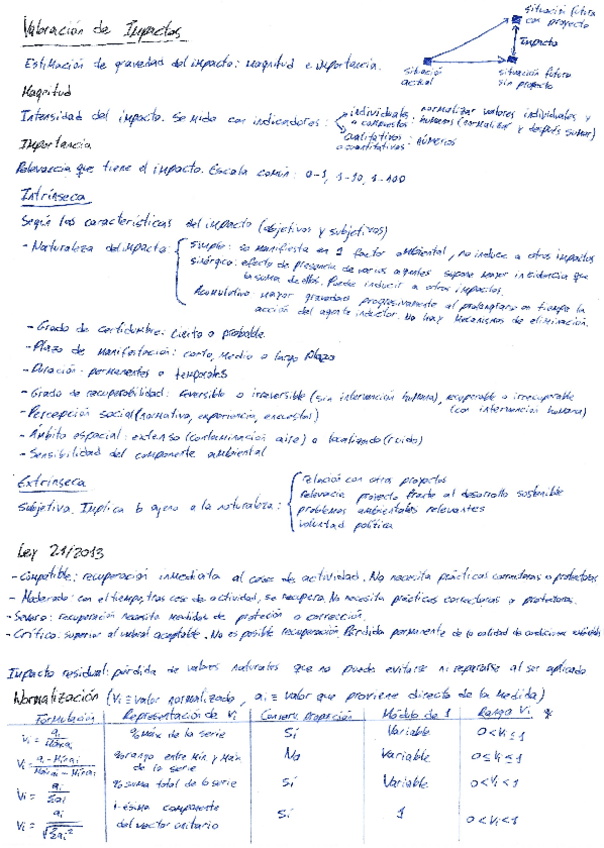 Valoración de Impactos
situación futura
con proyecto
Impacto
situación
actual
situación futura
sin proyecto
Estimación de gravedad del impacto: magnitud e importancia.
Magnitud
Intensidad del impacto. Se mide con indicadores: individuales o compuestos: normalizar valores individuales y
números (normalizar y después sumar)
cualitativos
o cuantitativos: números
Importancia
Relevancia que tiene el impacto. Escala común: 0-1, 1-10, 1-100
Intrínseca
Según las características del impacto (objetivos y subjetivos)
- Naturaleza del impacto: simple: se manifiesta en 1 factor ambiental, no induce a otros impactos
sinérgico: efecto de presencia de varios agentes supone mayor incidencia que
la suma de ellos. Puede inducir a otros impactos.
Acumulativo mayor gravedad progresivamente al prolongarse en tiempo la
acción del agente inductor. No hay mecanismos de eliminación.
- Grado de certidumbre: cierto o probable
- Plazo de manifestación: corto, medio o largo plazo
- Duración: permanentes o temporales
- Grado de recuperabilidad: reversible o irreversible (sin intervención humana), recuperable o irrecuperable
(con intervención humana)
- Percepción social (normativa, experiencia, encuestas)
- Ámbito espacial: extenso (contaminación aire) o localizado (ruido)
- Sensibilidad del componente ambiental
Extrínseca
Subjetiva. Implica lo ajeno a la naturaleza: relación con otros proyectos
relevancia proyecto frente al desarrollo sostenible
problemas ambientales relevantes
voluntad política
Ley 21/2013
- Compatible: recuperación inmediata al cese de actividad. No necesita prácticas correctoras o protectoras
- Moderado: con el tiempo, tras cese de actividad, se recupera. No necesita prácticas correctoras o protectoras.
- Severo: recuperación necesita medidas de protección o corrección.
- Crítico: superior al umbral aceptable. No es posible recuperación. Pérdida permanente de la calidad de condiciones
Impacto residual: pérdida de valores naturales que no puede evitarse ni repararse al ser aplicado
Normalización (Vi ≡ valor normalizado, ai ≡ valor que proviene directo de la medida)
Formulación Representación de Vi Conserv. Proporción Módulo de 1 Rango Vi
Vi = ai / Máx ai % máx de la serie Sí Variable 0<Vi≤1
Vi = ai - Mín ai / Máx ai - Mín ai % rango entre Mín y Máx
de la serie No Variable 0≤Vi≤1
Vi = ai / Σai % suma total de la serie Sí Variable 0<Vi<1
Vi = ai / √Σai² i-ésimo componente
del vector unitario Sí 1 0<Vi<1